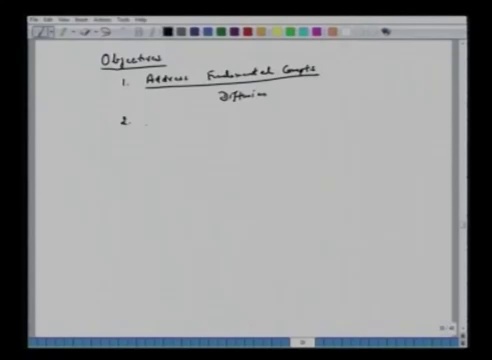 File Edit View Insert Actions Tools Help
Objectives
1. Address Fundamental Concepts
Diffusion
2.